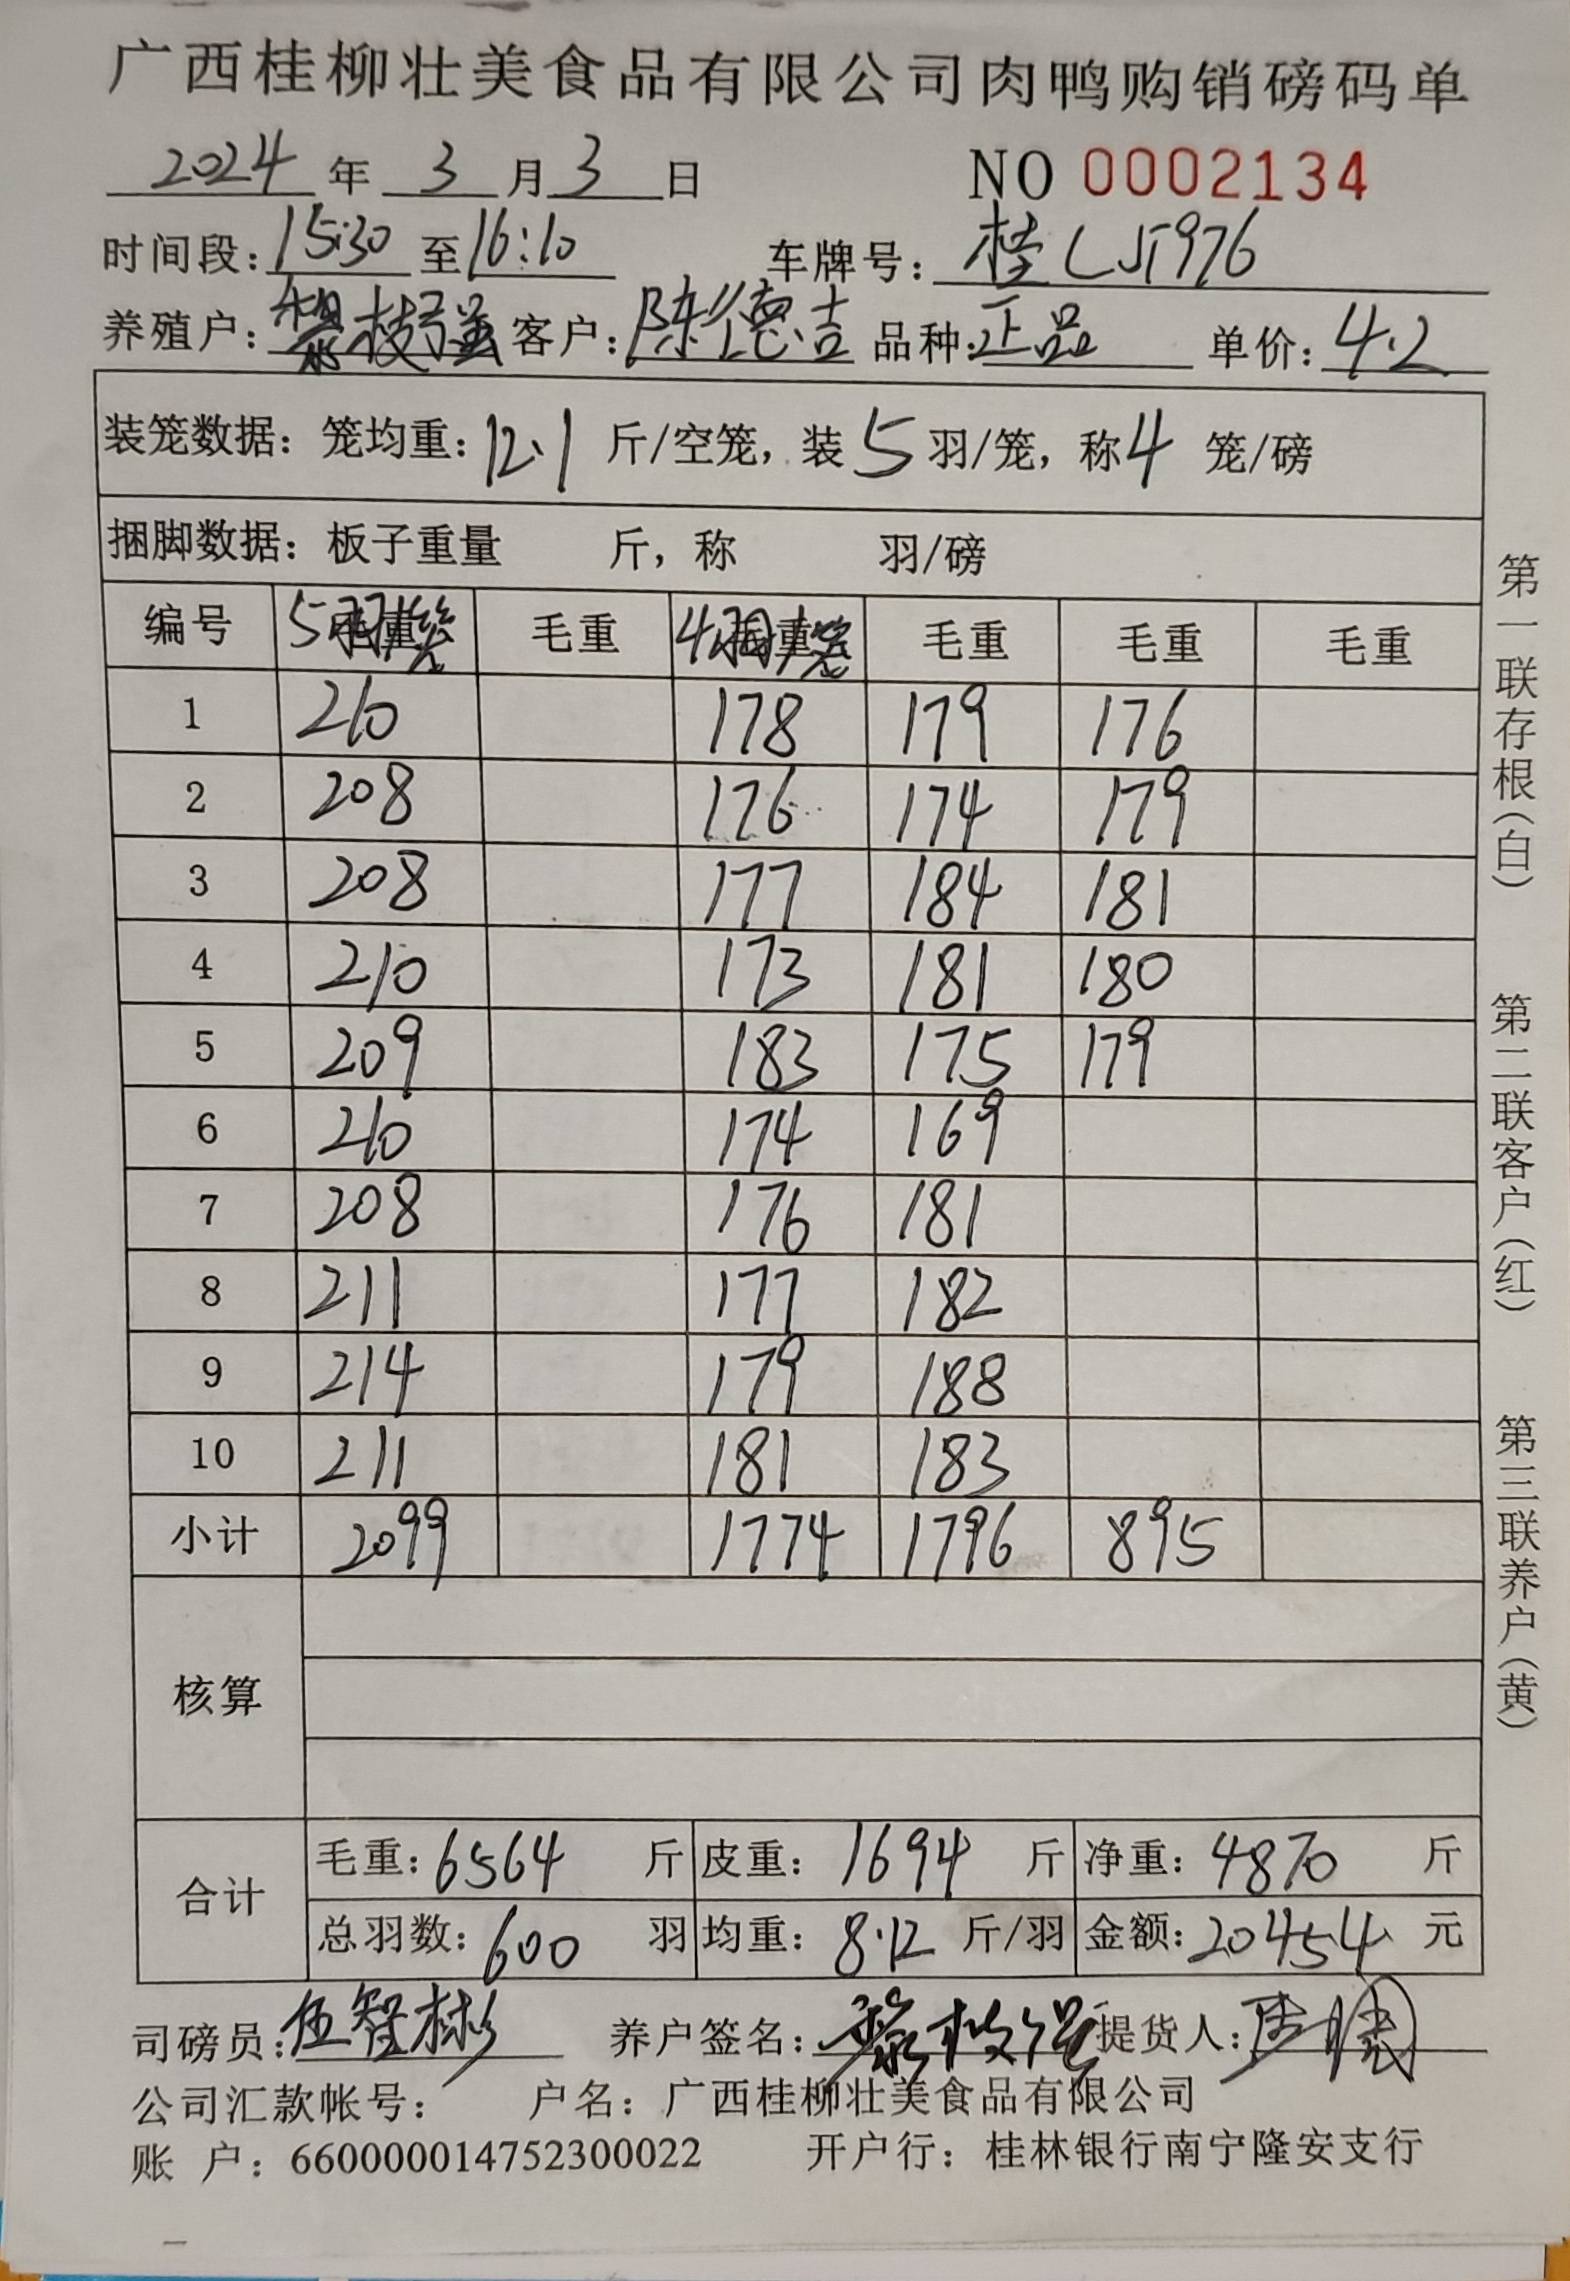 广西桂柳壮美食品有限公司肉鸭购销磅码单
2024 年 3 月 3 日 NO 0002134
时间段：15:30 至 16:10 车牌号：桂LJ5976
养殖户：黎枝强 客户：陈德吉 品种：正品 单价：4.2
装笼数据：笼均重：12.1 斤/空笼，装 5 羽/笼，称 4 笼/磅
捆脚数据：板子重量 斤，称 羽/磅
编号 5羽/笼 毛重 4羽/笼 毛重 毛重 毛重
1 210 178 179 176
2 208 176 174 179
3 208 177 184 181
4 210 173 181 180
5 209 183 175 179
6 210 174 169
7 208 176 181
8 211 177 182
9 214 179 188
10 211 181 183
小计 2099 1774 1796 895
核算
合计 毛重：6564 斤 皮重：1694 斤 净重：4870 斤
总羽数：600 羽 均重：8.12 斤/羽 金额：20454 元
司磅员：伍智彬 养户签名：黎枝强 提货人：
公司汇款帐号： 户名：广西桂柳壮美食品有限公司
账 户：660000014752300022 开户行：桂林银行南宁隆安支行
第一联存根（白）
第二联客户（红）
第三联养户（黄）